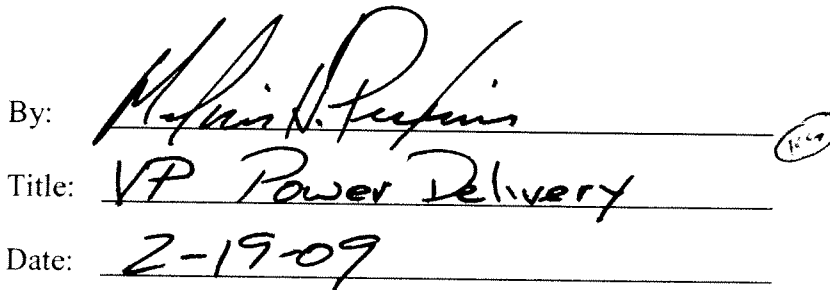 By: Melvin H. Perkins
Title: VP Power Delivery
Date: 2-19-09